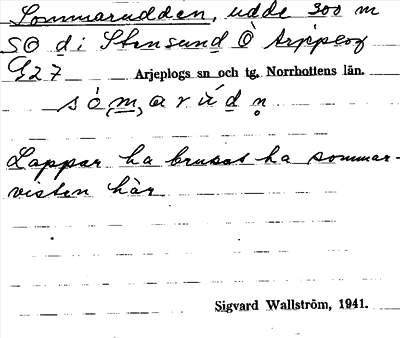 Sommarudden, udde 300 m
SO d i Stensund Ö Arjeplog
G27 Arjeplogs sn och tg. Norrbottens län.
sò͕m,arúdn̥
Lappar ha brukat ha sommar-
visten här
Sigvard Wallström, 1941.